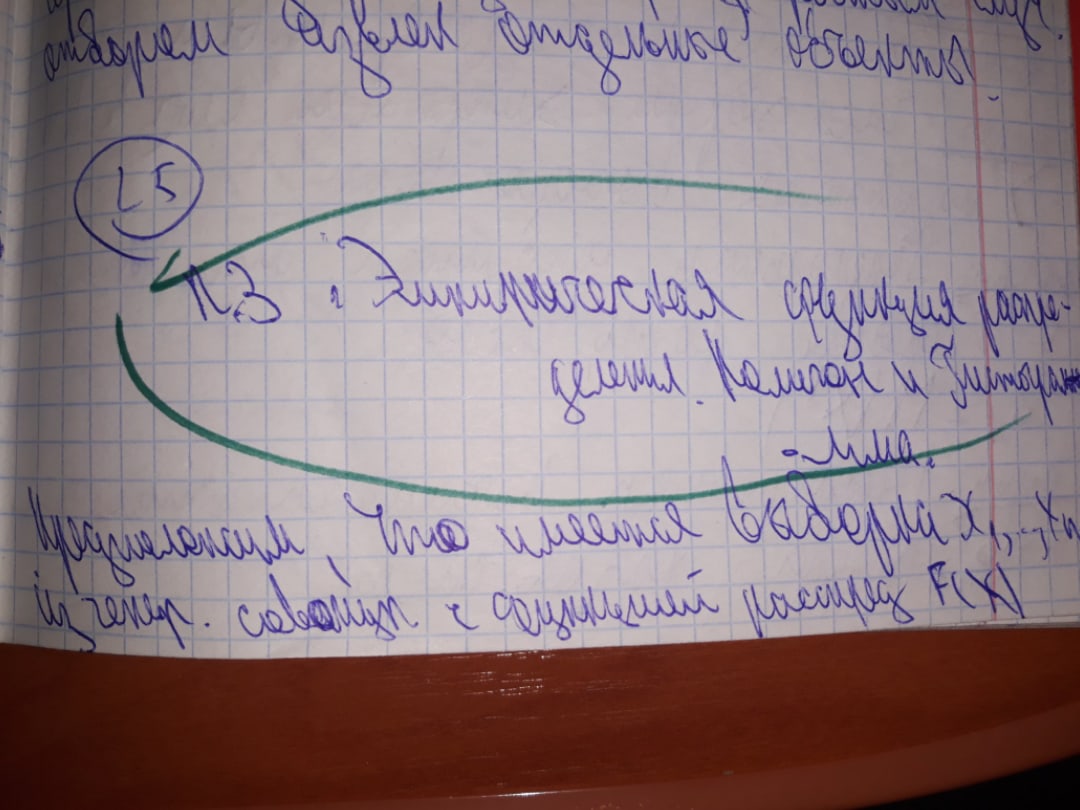 отбором извлек отдельные объекты
L5
п.3 : Эмпирическая функция распре-
деления. Полигон и Гистограм-
-мма.
Предположим, что имеется выборка x₁,..,xₙ
из генер. совокуп. с функцией распред F(X)